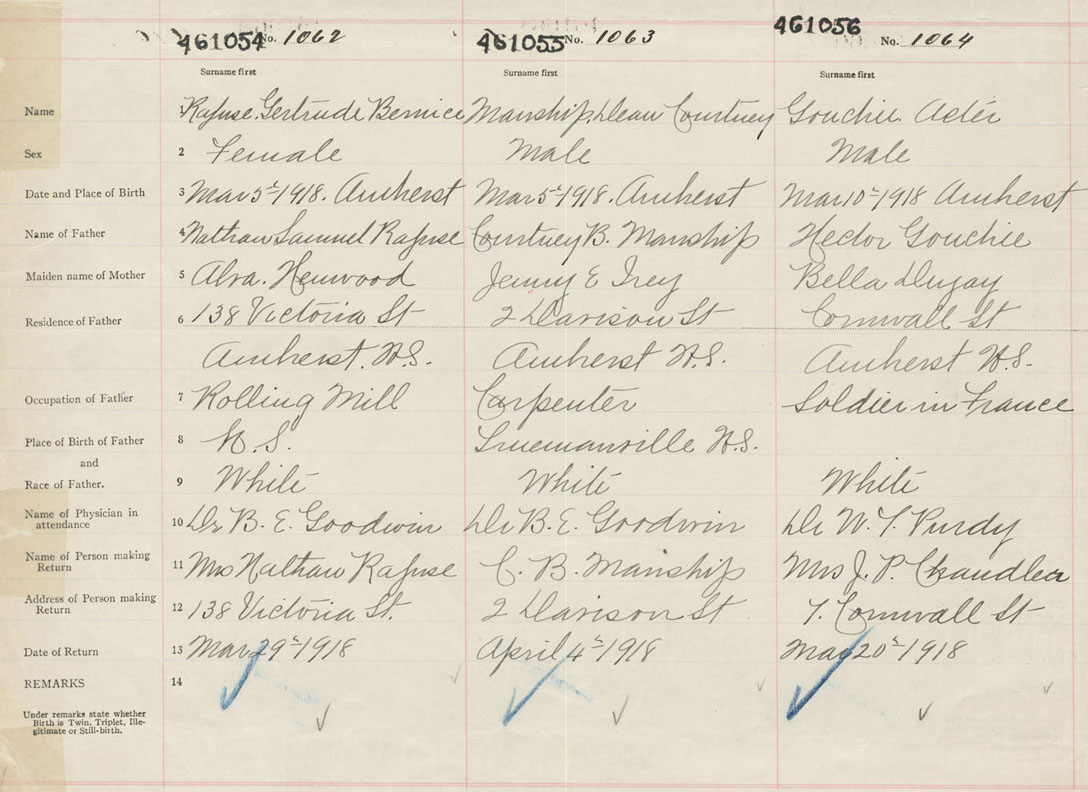 461054 No. 1062 461055 No. 1063 461056 No. 1064
Surname first Surname first Surname first
Name 1 Rafuse, Gertrude Bernice Manship, Dean Courtney Gouchie
Sex 2 Female Male Male
Date and Place of Birth 3 Mar 5th 1918. Amherst Mar 5th 1918. Amherst Mar 10th 1918 Amherst
Name of Father 4 Nathan Samuel Rafuse Courtney B. Manship Hector Gouchie
Maiden name of Mother 5 Alva. Henwood Jenny E Bella
Residence of Father 6 138 Victoria St 2 Davison St Cornwall St
Amherst. N.S. Amherst N.S. Amherst N.S.
Occupation of Father 7 Rolling Mill Carpenter Soldier in France
Place of Birth of Father 8 N.S. Truemanville N.S.
and
Race of Father. 9 White White White
Name of Physician in
attendance 10 Dr B. E. Goodwin Dr B. E. Goodwin Dr W. T. Purdy
Name of Person making
Return 11 Mrs Nathan Rafuse C. B. Manship Mrs J. P. Chandler
Address of Person making
Return 12 138 Victoria St. 2 Davison St 7. Cornwall St
Date of Return 13 Mar 29th 1918 April 4th 1918 May 20th 1918
REMARKS 14
Under remarks state whether
Birth is Twin, Triplet, Ille-
gitimate or Still-birth.